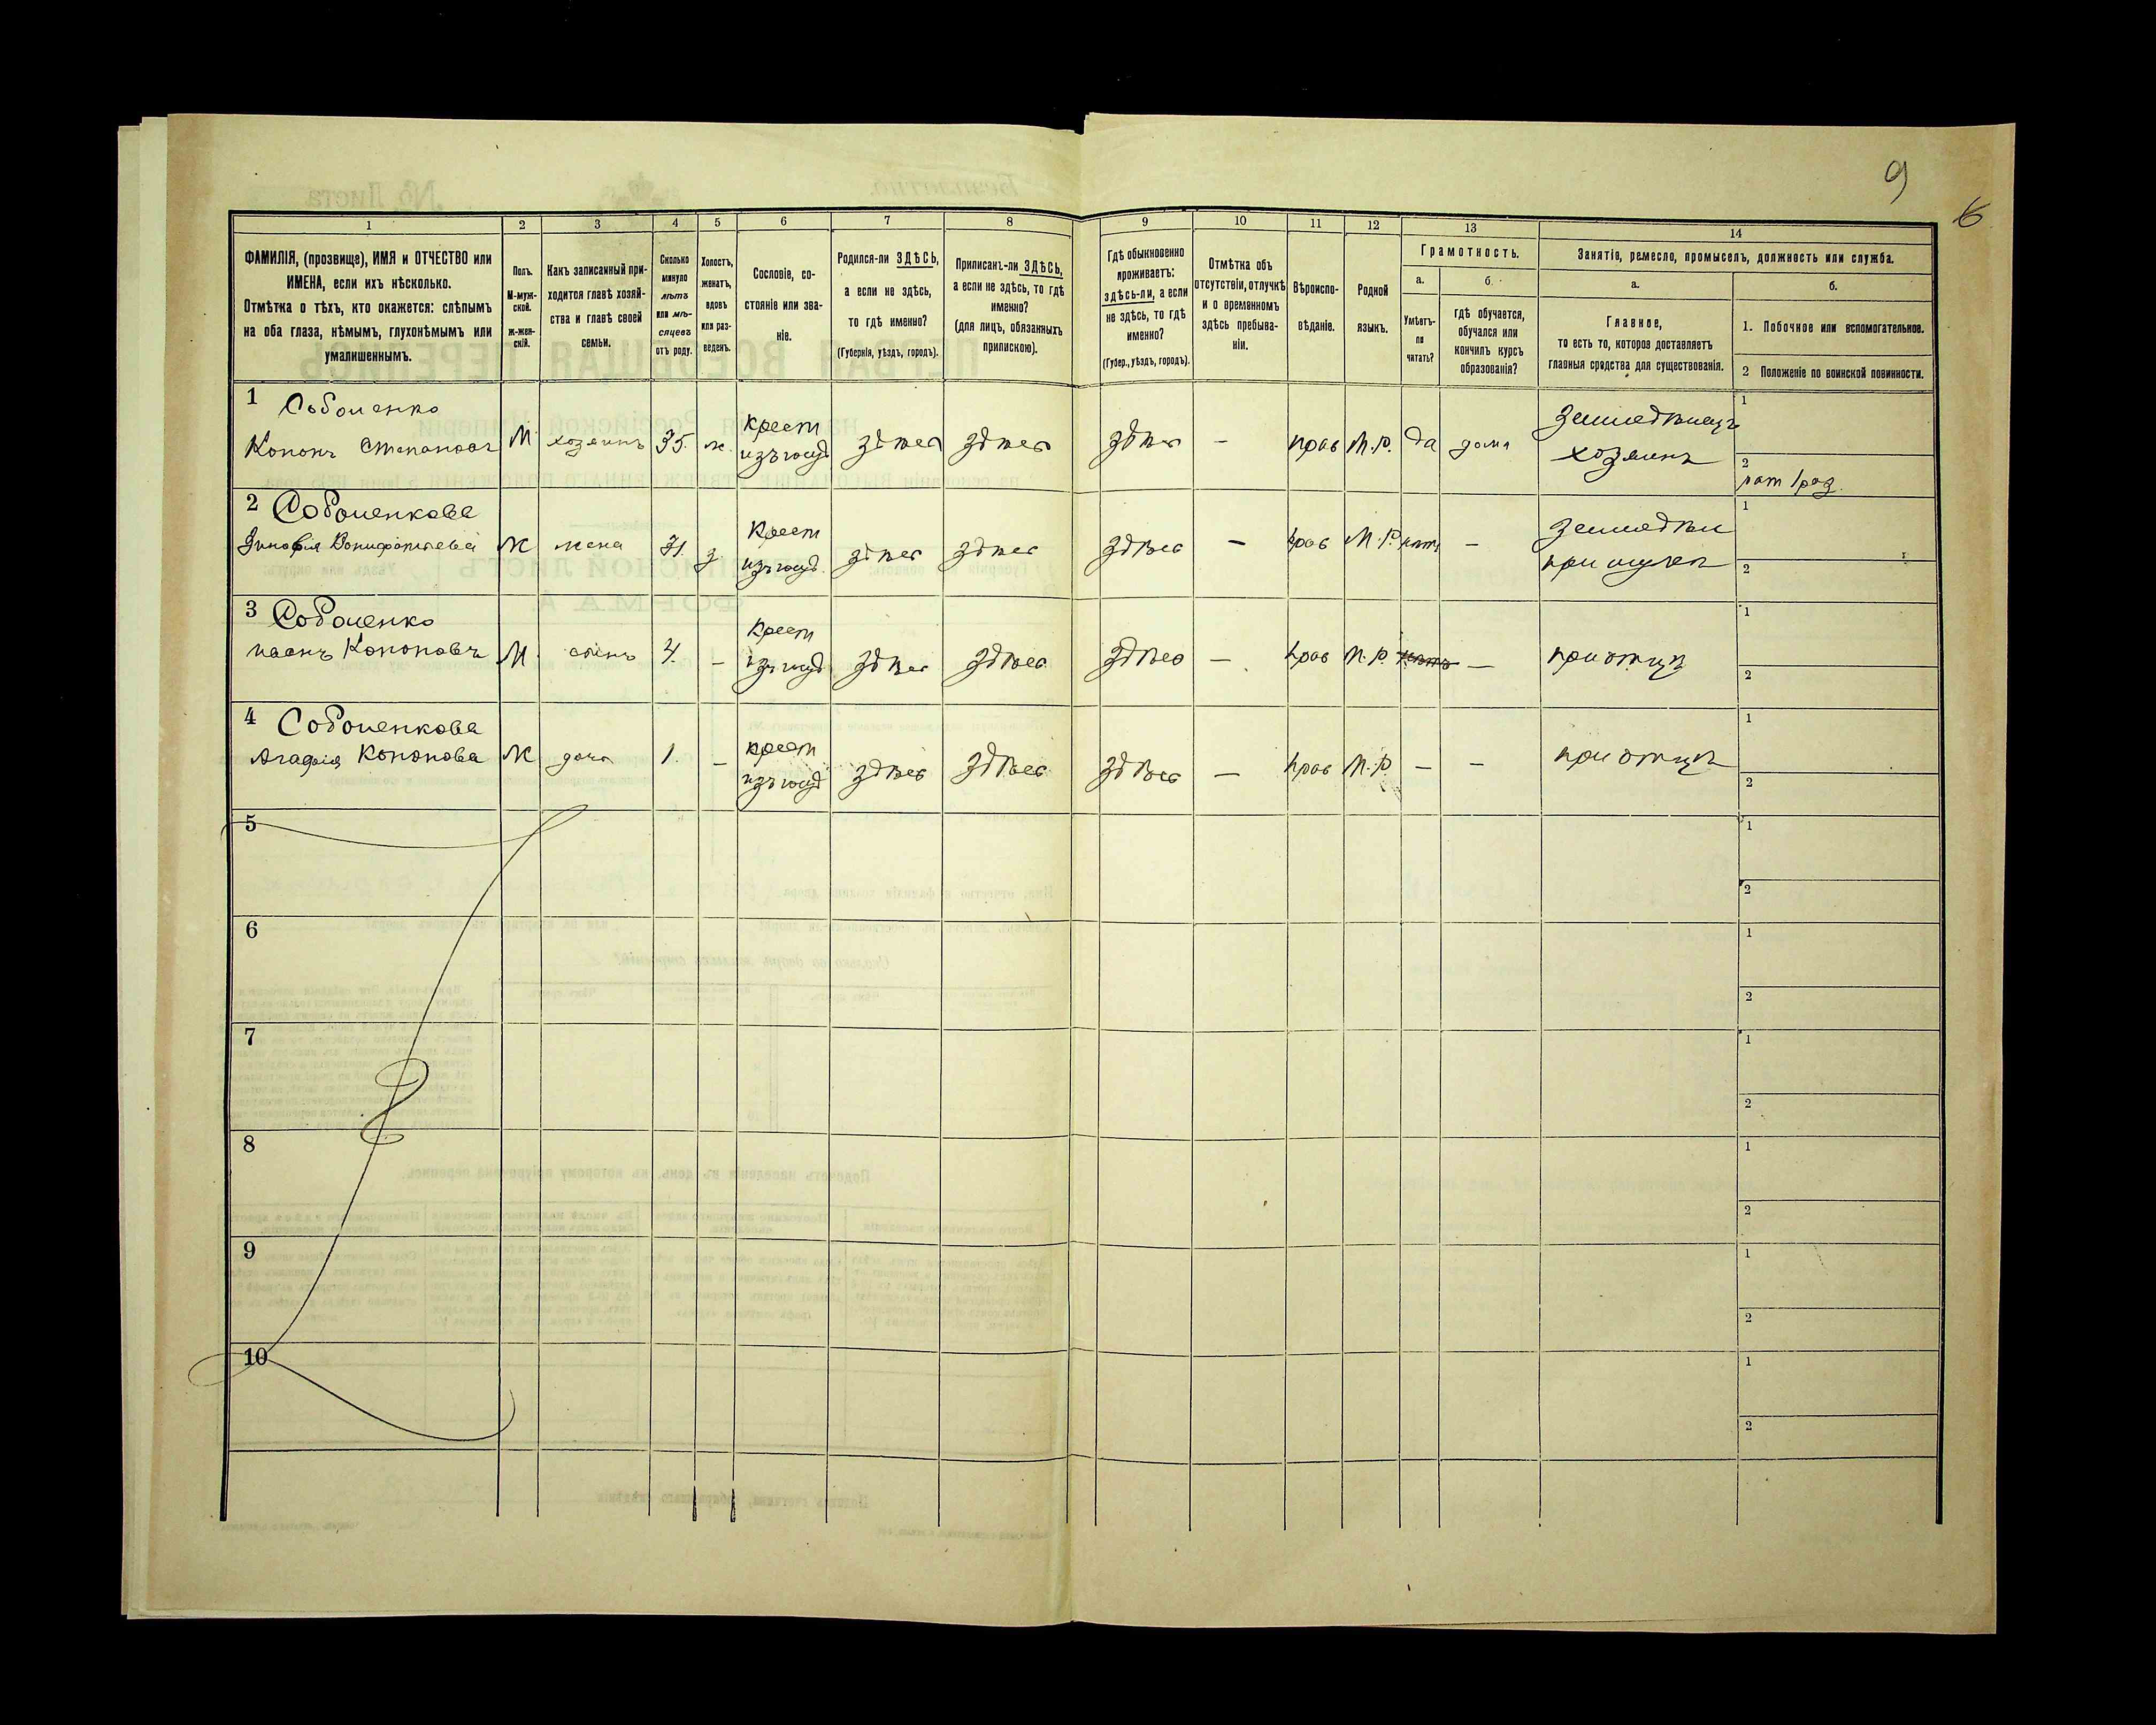 9
6
1
2
3
4
5
6
7
8
9
10
11
12
13
14
ФАМИЛІЯ, (прозвище), ИМЯ и ОТЧЕСТВО или
ИМЕНА, если ихъ нѣсколько.
Отмѣтка о тѣхъ, кто окажется: слѣпымъ
на оба глаза, нѣмымъ, глухонѣмымъ или
умалишеннымъ.
Полъ.
М-муж-
ской.
ж-жен-
скій.
Какъ записанный при-
ходится главѣ хозяй-
ства и главѣ своей
семьи.
Сколько
минуло
лѣтъ
или мѣ-
сяцевъ
отъ роду.
Холостъ,
женатъ,
вдовъ
или раз-
веденъ.
Сословіе, со-
стояніе или зва-
ніе.
Родился-ли ЗДѢСЬ,
а если не здѣсь,
то гдѣ именно?
(Губернія, уѣздъ, городъ).
Приписанъ-ли ЗДѢСЬ,
а если не здѣсь, то гдѣ
именно?
(для лицъ, обязанныхъ
припискою).
Гдѣ обыкновенно
проживаетъ:
здѣсь-ли, а если
не здѣсь, то гдѣ
именно?
(Губер., уѣздъ, городъ).
Отмѣтка объ
отсутствіи, отлучкѣ
и о временномъ
здѣсь пребыва-
ніи.
Вѣроиспо-
вѣданіе.
Родной
языкъ.
Грамотность.
а.
Умѣетъ-
ли
читать?
б.
гдѣ обучается,
обучался или
кончилъ курсъ
образованія?
Занятіе, ремесло, промыселъ, должность или служба.
а.
Главное,
то есть то, которое доставляетъ
главныя средства для существованія.
б.
1. Побочное или вспомогательное.
2 Положеніе по воинской повинности.
1 Соболенко
Кононъ Степановъ
М
хозяинъ
35.
ж.
крест
изъ госуд
здѣсь
здѣсь
здѣсь
–
прав
М.Р.
да
дома
земледѣлецъ
хозяинъ
1
2
рат 1 раз.
2 Соболенкова
Зиновія Вонифатьева
Ж
жена
31.
з.
Крест
изъ госуд.
здѣсь
здѣсь
здѣсь
–
прав
М.Р.
нѣтъ
–
земледѣл
при мужѣ
1
2
3 Соболенко
Кононовъ
М
сынъ
4.
–
Крест
изъ госуд
здѣсь
здѣсь
здѣсь
–
прав
М.Р.
нѣтъ
–
при отцѣ
1
2
4 Соболенкова
Агафія Кононова
Ж
дочь
1.
–
крест
изъ госуд
здѣсь
здѣсь
здѣсь
–
прав
М.Р.
–
–
при отцѣ
1
2
5
1
2
6
1
2
7
1
2
8
1
2
9
1
2
10
1
2